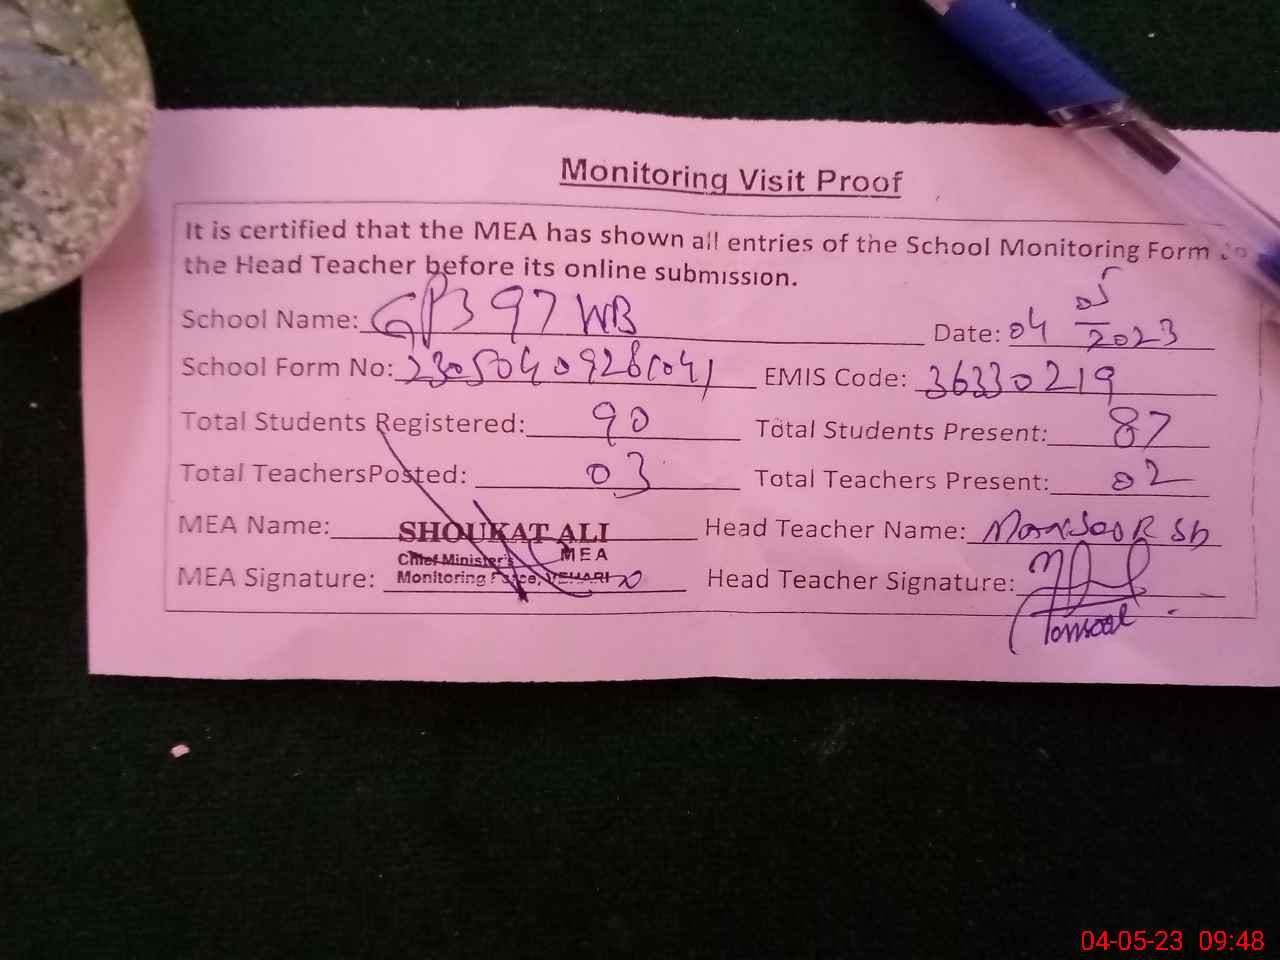 Monitoring Visit Proof
It is certified that the MEA has shown all entries of the School Monitoring Form to
the Head Teacher before its online submission.
School Name: GPS 97 WB Date: 04 05 2023
School Form No: EMIS Code: 36330219
Total Students Registered: 90 Total Students Present: 87
Total TeachersPosted: 03 Total Teachers Present: 02
MEA Name: SHOUKAT ALI Head Teacher Name:
Chief Minister's MEA
MEA Signature: Monitoring Force, VEHARI Head Teacher Signature:
04-05-23 09:48